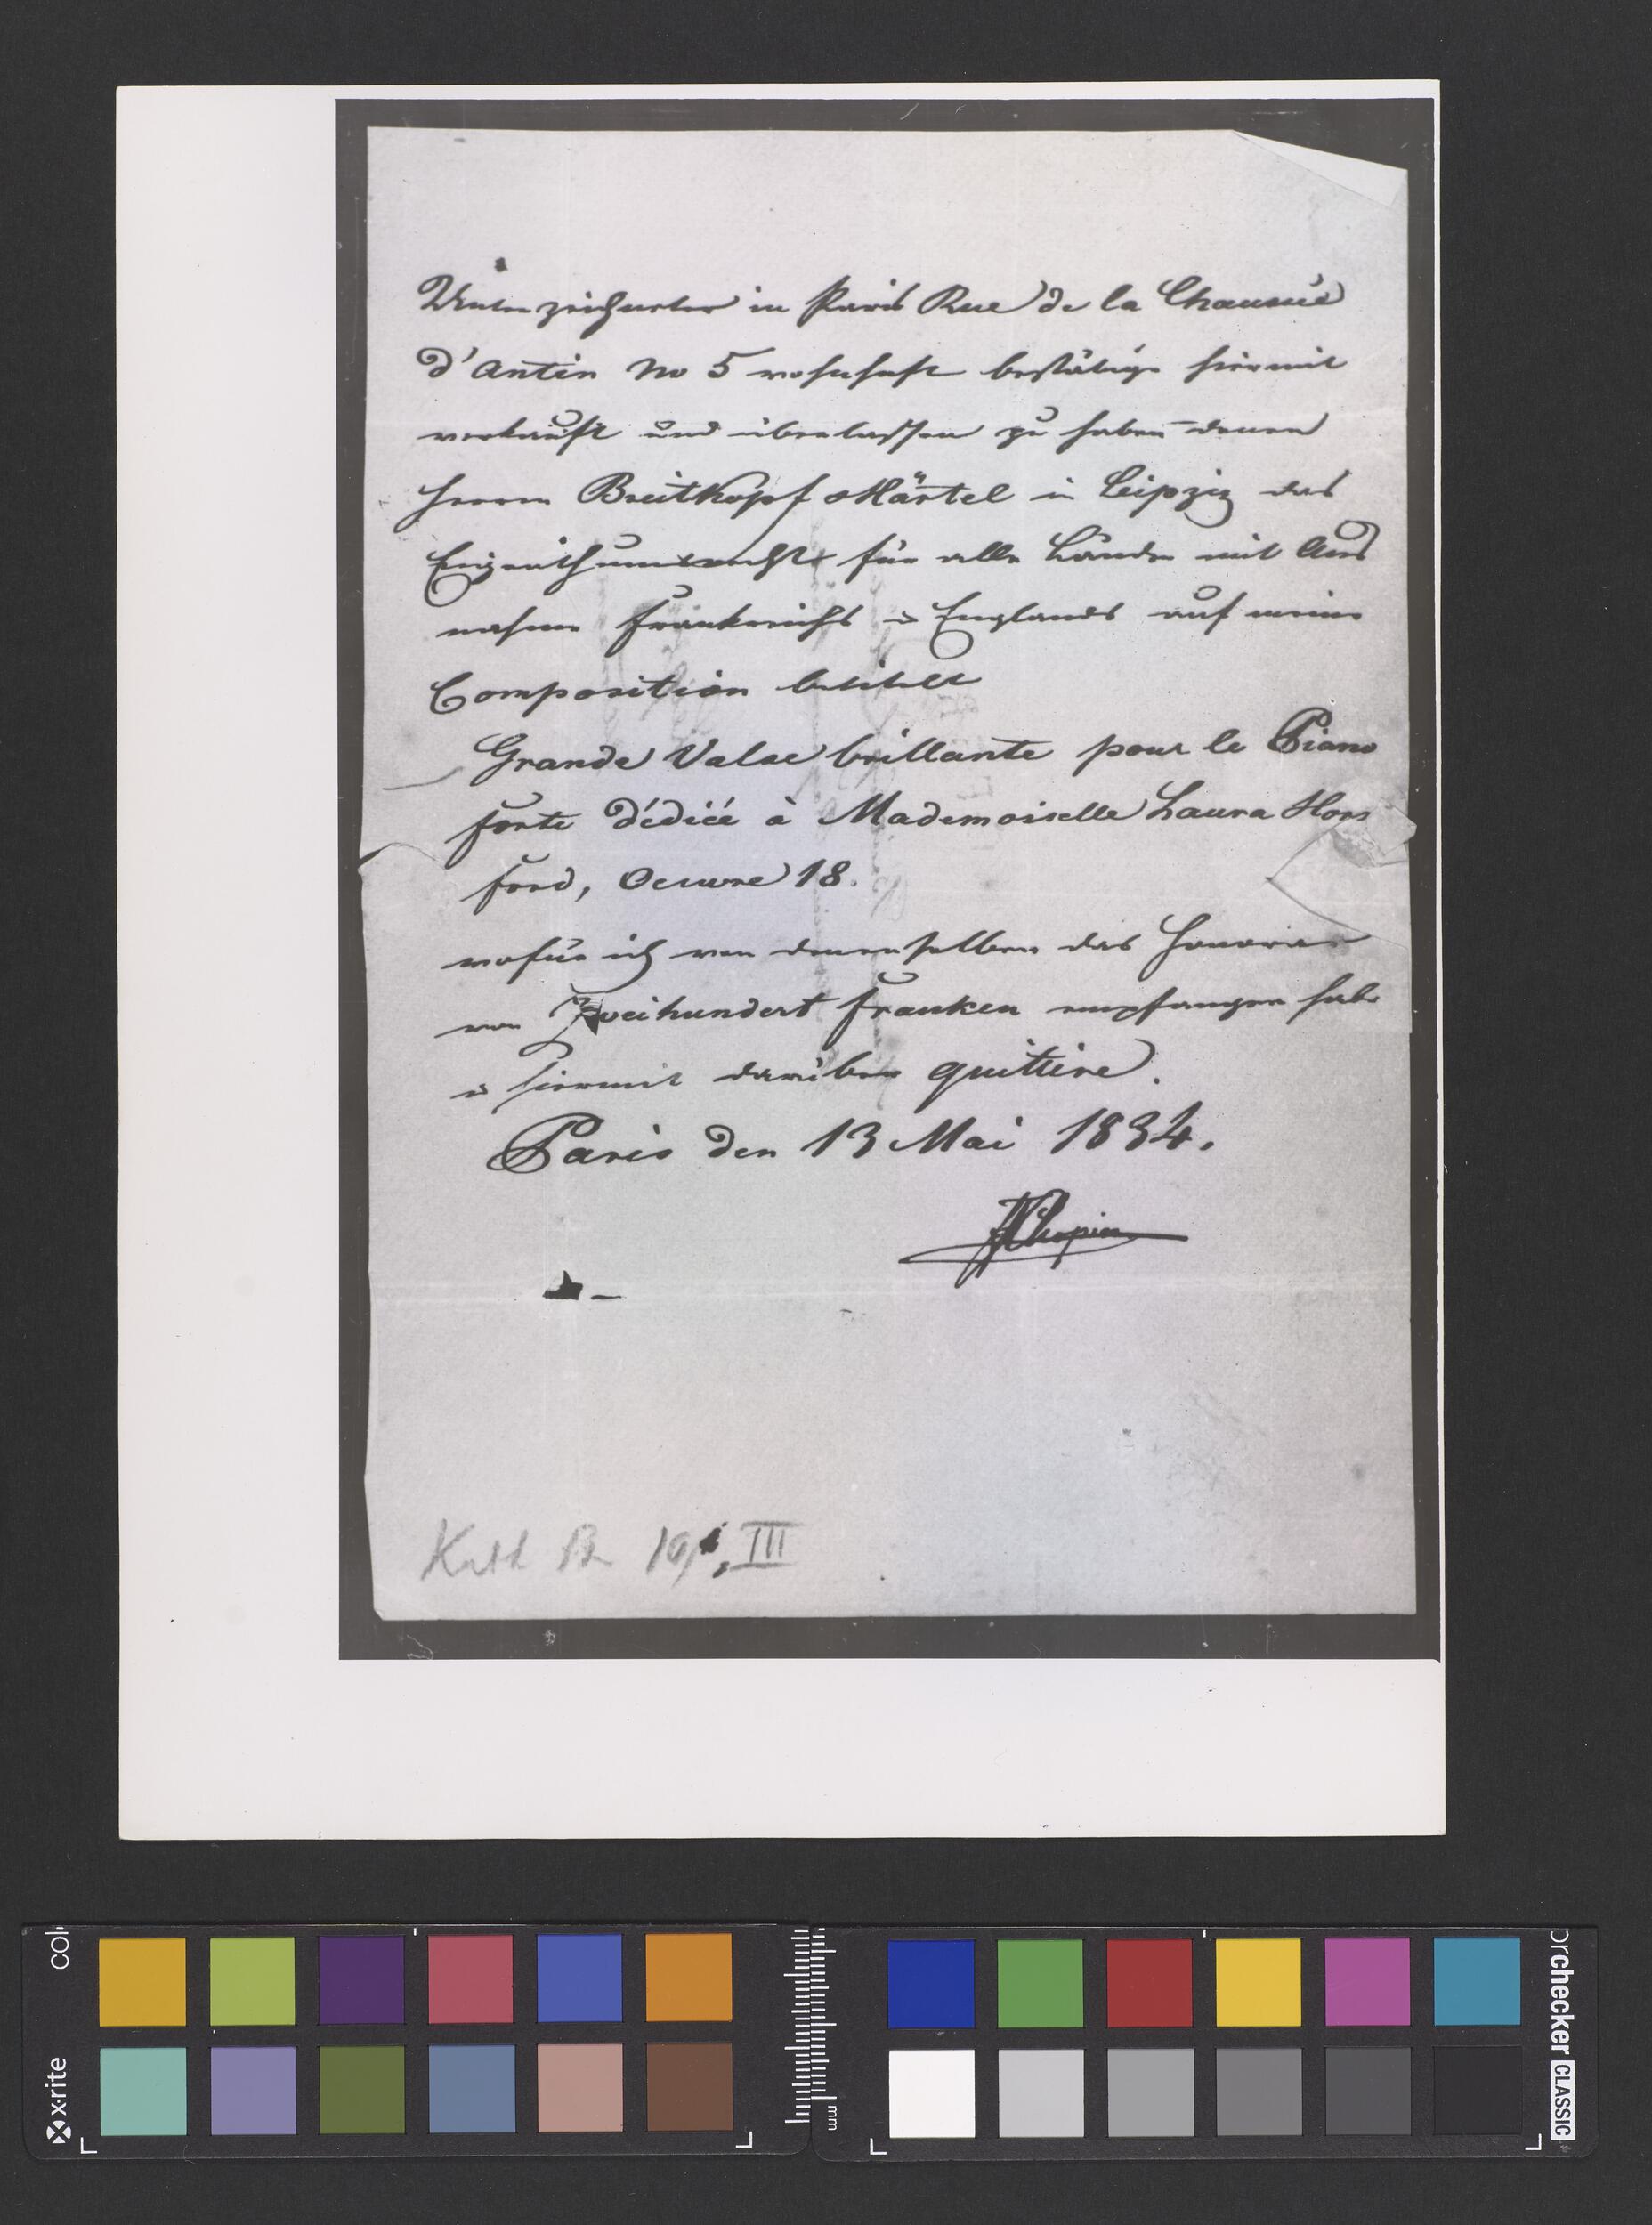 Unterzeichneter in Paris Rue de la Chaussée
d'Antin No 5 wohnhaft bestätige hiermit
verkauft und überlassen zu haben denen
Herrn Breitkopf & Härtel in Leipzig das
Eigenthumsrecht für alle Länder mit Aus
nahme Frankreichs & Englands auf meine
Composition betitelt
Grande Valse brillante pour le Piano
forte dédiée à Mademoiselle Laura Hors
ford, Oeuvre 18.
wofür ich von denenselben das Honorar
von Zweihundert Franken empfangen habe
& hiermit darüber quittire.
Paris den 13 Mai 1834.
FFChopin
III
col
x·rite
mm
orchecker CLASSIC